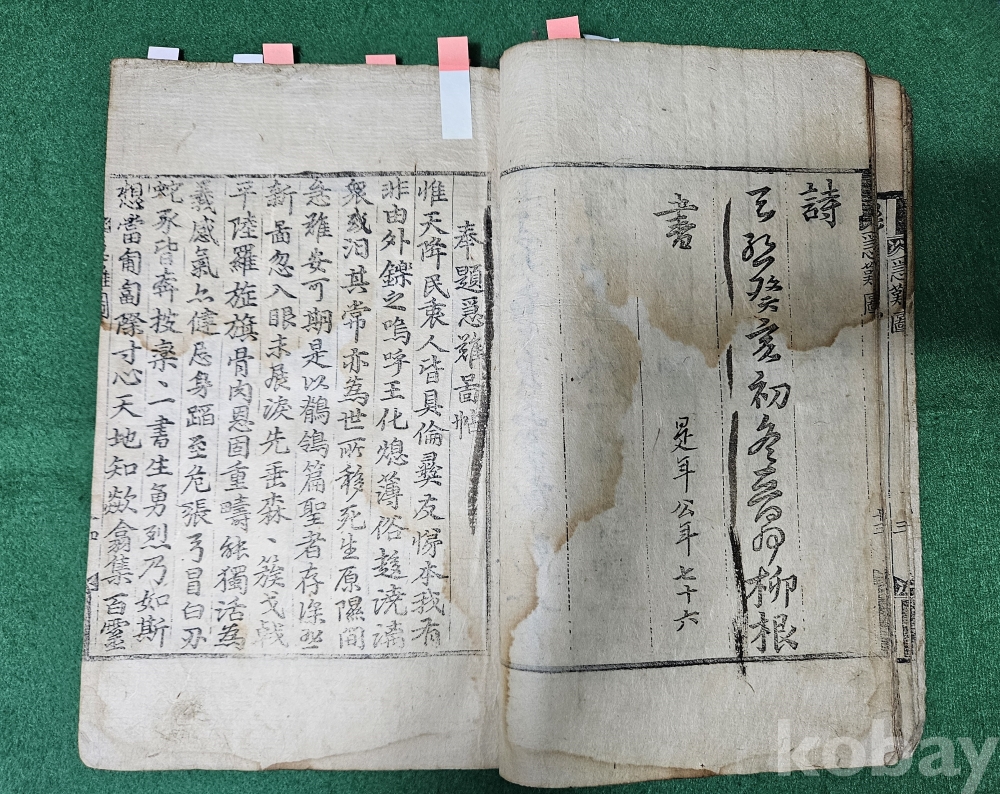 詩
天啓癸亥初冬晉原柳根
書
是年公年七十六
奉題急難啚帖
惟天降民衷人皆具倫彛友悌本我有
非由外鑠之嗚呼王化熄薄俗趍澆漓
衆或汨其常亦為世所移死生原隰間
急難安可期是以鶺鴒篇聖者存深
新啚忽入眼未展淚先垂森丶簇戈戟
平陸羅旌旗骨肉恩固重疇能獨活為
義感氣亦倢忘身蹈至危張弓冒白刃
蛇豕皆奔投稟二書生勇烈乃如斯
想當匍匐際寸心天地知欻翕集百靈
急難圖
急難圖
急難圖
kobay